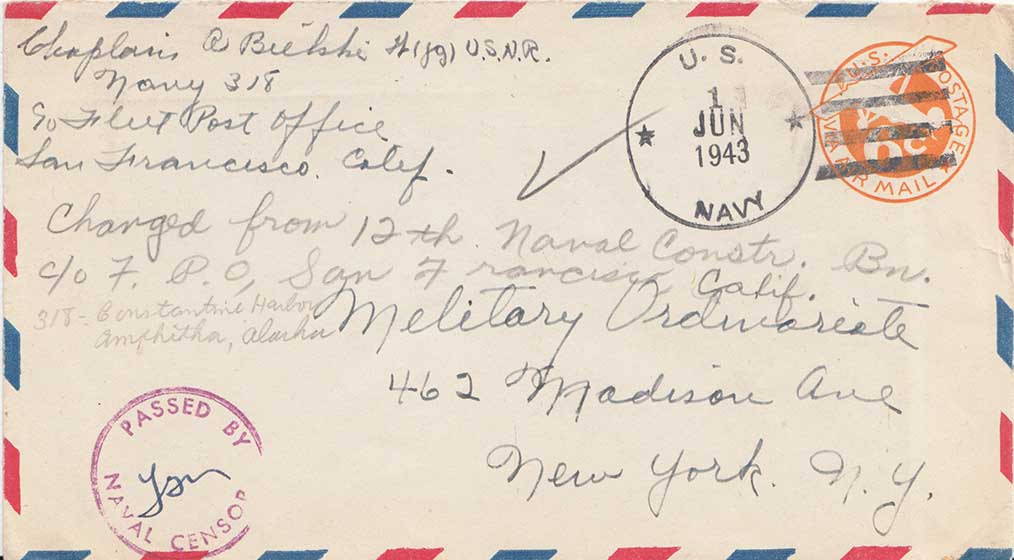 Chaplain A Bielski Lt (jg) U.S.N.R.
Navy 318
c/o Fleet Post Office
San Francisco. Calif.
U. S.
1
JUN
1943
NAVY
U.S. POSTAGE
VIA AIR MAIL
6c
Changed from 12th. Naval Constr. Bn.
c/o F. P.O, San Francisco Calif.
318- Constantine Harbor
Amphitka, Alaska
Military Ordinariate
462 Madison Ave
New York. N.Y.
PASSED BY
NAVAL CENSOR